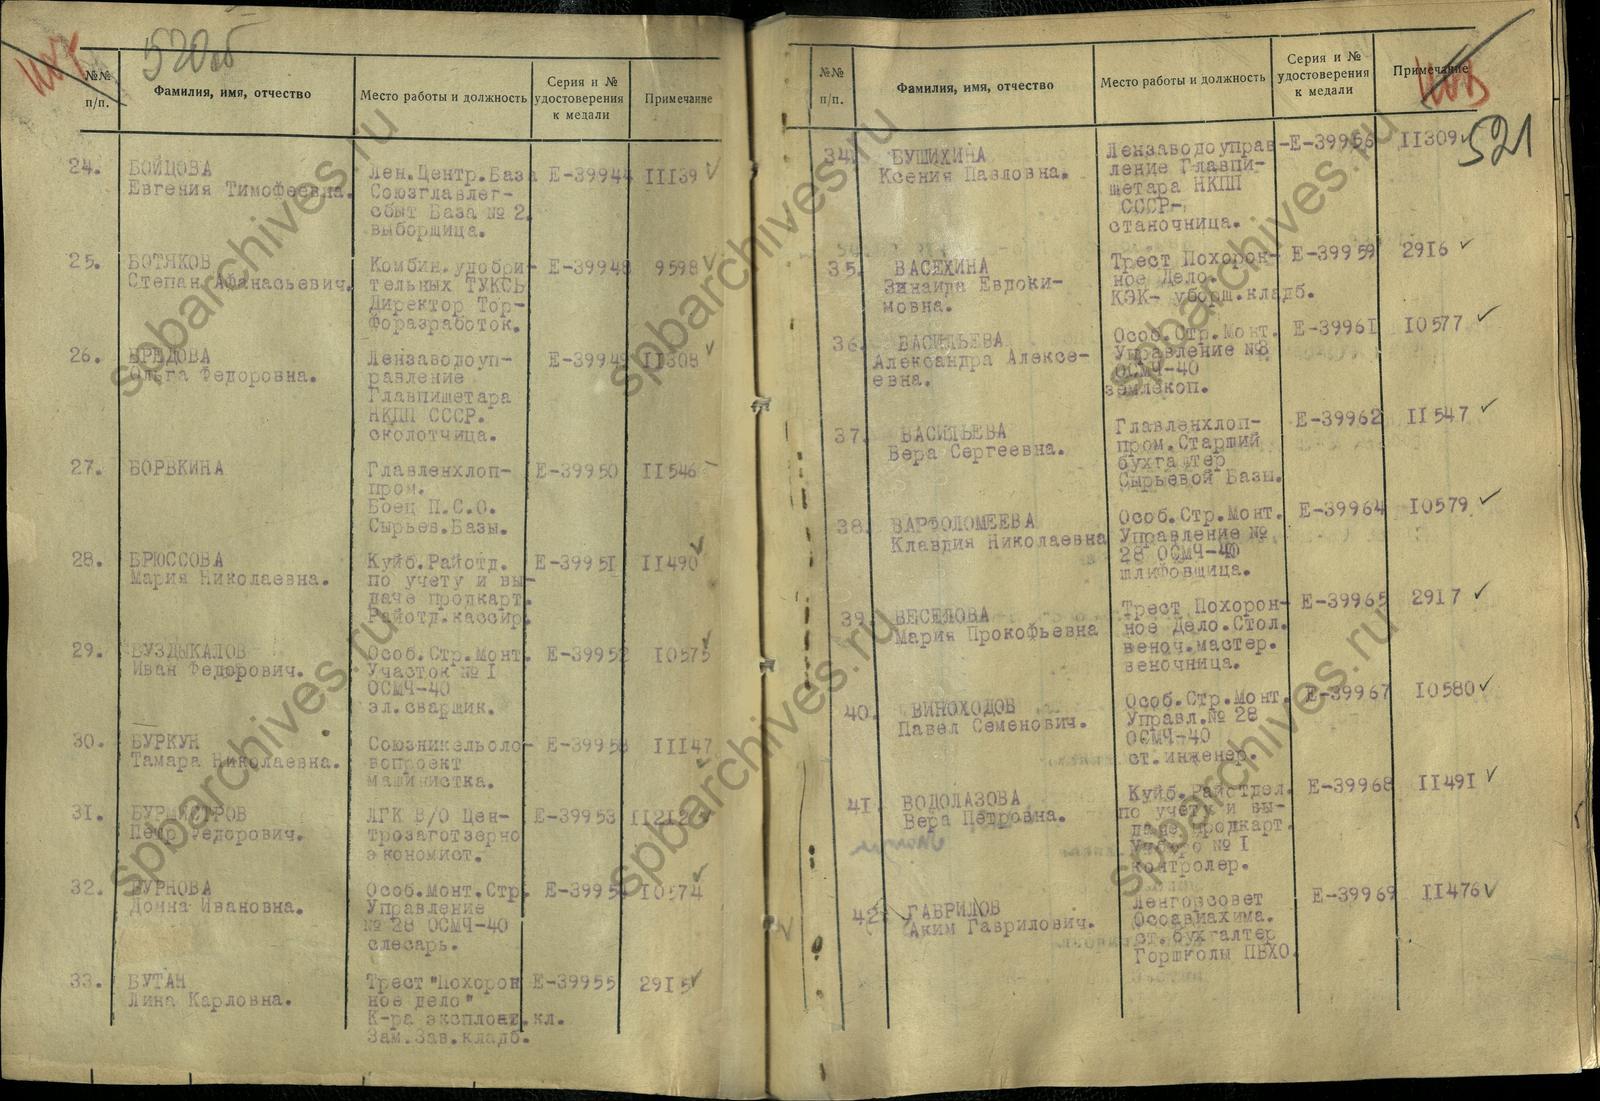 520об
№№ п/п.
Фамилия, имя, отчество
Место работы и должность
Серия и № удостоверения к медали
Примечание
24. БОЙЦОВА Лен.Центр.База Е-39944 III39 ✓
Евгения Тимофеевна. Союзглавлег-
сбыт База № 2.
выборщица.
25. БОТЯКОВ Комбин.удобри- Е-39948 9598 ✓
Степан Афанасьевич. тельных ТУКСЬ
Директор Тор-
форазработок.
26. БРЕДОВА Лензаводоуп- Е-39949 II308 ✓
Ольга Федоровна. равление
Главпищетара
НКПП СССР.
сколотчица.
27. БОРВКИНА Главленхлоп- Е-39950 II546
пром.
Боец П.С.О.
Сырьев.Базы.
28. БРЮССОВА Куйб.Райотд. Е-3995I II490 ✓
Мария Николаевна. по учету и вы-
даче продкарт.
Райотд.кассир.
29. БУЗДЫКАЛОВ Особ.Стр.Монт. Е-39952 I0575 ✓
Иван Федорович. Участок № I
ОСМЧ-40
эл.сварщик.
30. БУРКУН Союзникельоло- Е-39953 III47 ✓
Тамара Николаевна. вопроект
машинистка.
31. БУРМИСТРОВ ЛГК В/О Цен- Е-39953 II212 ✓
Петр Федорович. трозаготзерно
экономист.
32. БУРНОВА Особ.Монт.Стр. Е-39954 I0574 ✓
Домна Ивановна. Управление
№ 28 ОСМЧ-40
слесарь.
33. БУТАН Трест "Похорон Е-39955 29I5 ✓
Лина Карловна. ное дело"
К-ра эксплоат.кл.
Зам.Зав.кладб.
521
№№ п/п.
Фамилия, имя, отчество
Место работы и должность
Серия и № удостоверения к медали
Примечание
34. БУШИХИНА Лензаводоуправ- Е-39956 II309 ✓
Ксения Павловна. ление Главпи-
щетара НКПП
СССР-
станочница.
35. ВАСЕХИНА Трест Похорон- Е-39959 29I6 ✓
Зинаида Евдоки- ное Дело.
мовна. КЭК- уборщ.кладб.
36. ВАСИЛЬЕВА Особ.Стр.Монт. Е-3996I I0577 ✓
Александра Алексе- Управление №8
евна. ОСМЧ-40
землекоп.
37. ВАСИЛЬЕВА Главленхлоп- Е-39962 II547 ✓
Вера Сергеевна. пром.Старший
бухгалтер
Сырьевой Базы.
38. ВАРФОЛОМЕЕВА Особ.Стр.Монт. Е-39964 I0579 ✓
Клавдия Николаевна Управление №
28 ОСМЧ-40
шлифовщица.
39. ВЕСЕЛОВА Трест Похорон- Е-39965 29I7 ✓
Мария Прокофьевна ное Дело.Стол.
веноч.мастер.
веночница.
40. ВИНОХОДОВ Особ.Стр.Монт. Е-39967 I0580 ✓
Павел Семенович. Управл.№ 28
ОСМЧ-40
ст.инженер.
41. ВОДОЛАЗОВА Куйб.Райотдел. Е-39968 II49I ✓
Вера Петровна. по учету и вы-
даче продкарт.
№ I
контролер.
42. ГАВРИЛОВ Ленгорсовет Е-39969 II476 ✓
Аким Гаврилович. Осоавиахима.
ст.бухгалтер
Горшколы ПВХО.
spbarchives.ru
spbarchives.ru
spbarchives.ru
spbarchives.ru
spbarchives.ru
spbarchives.ru